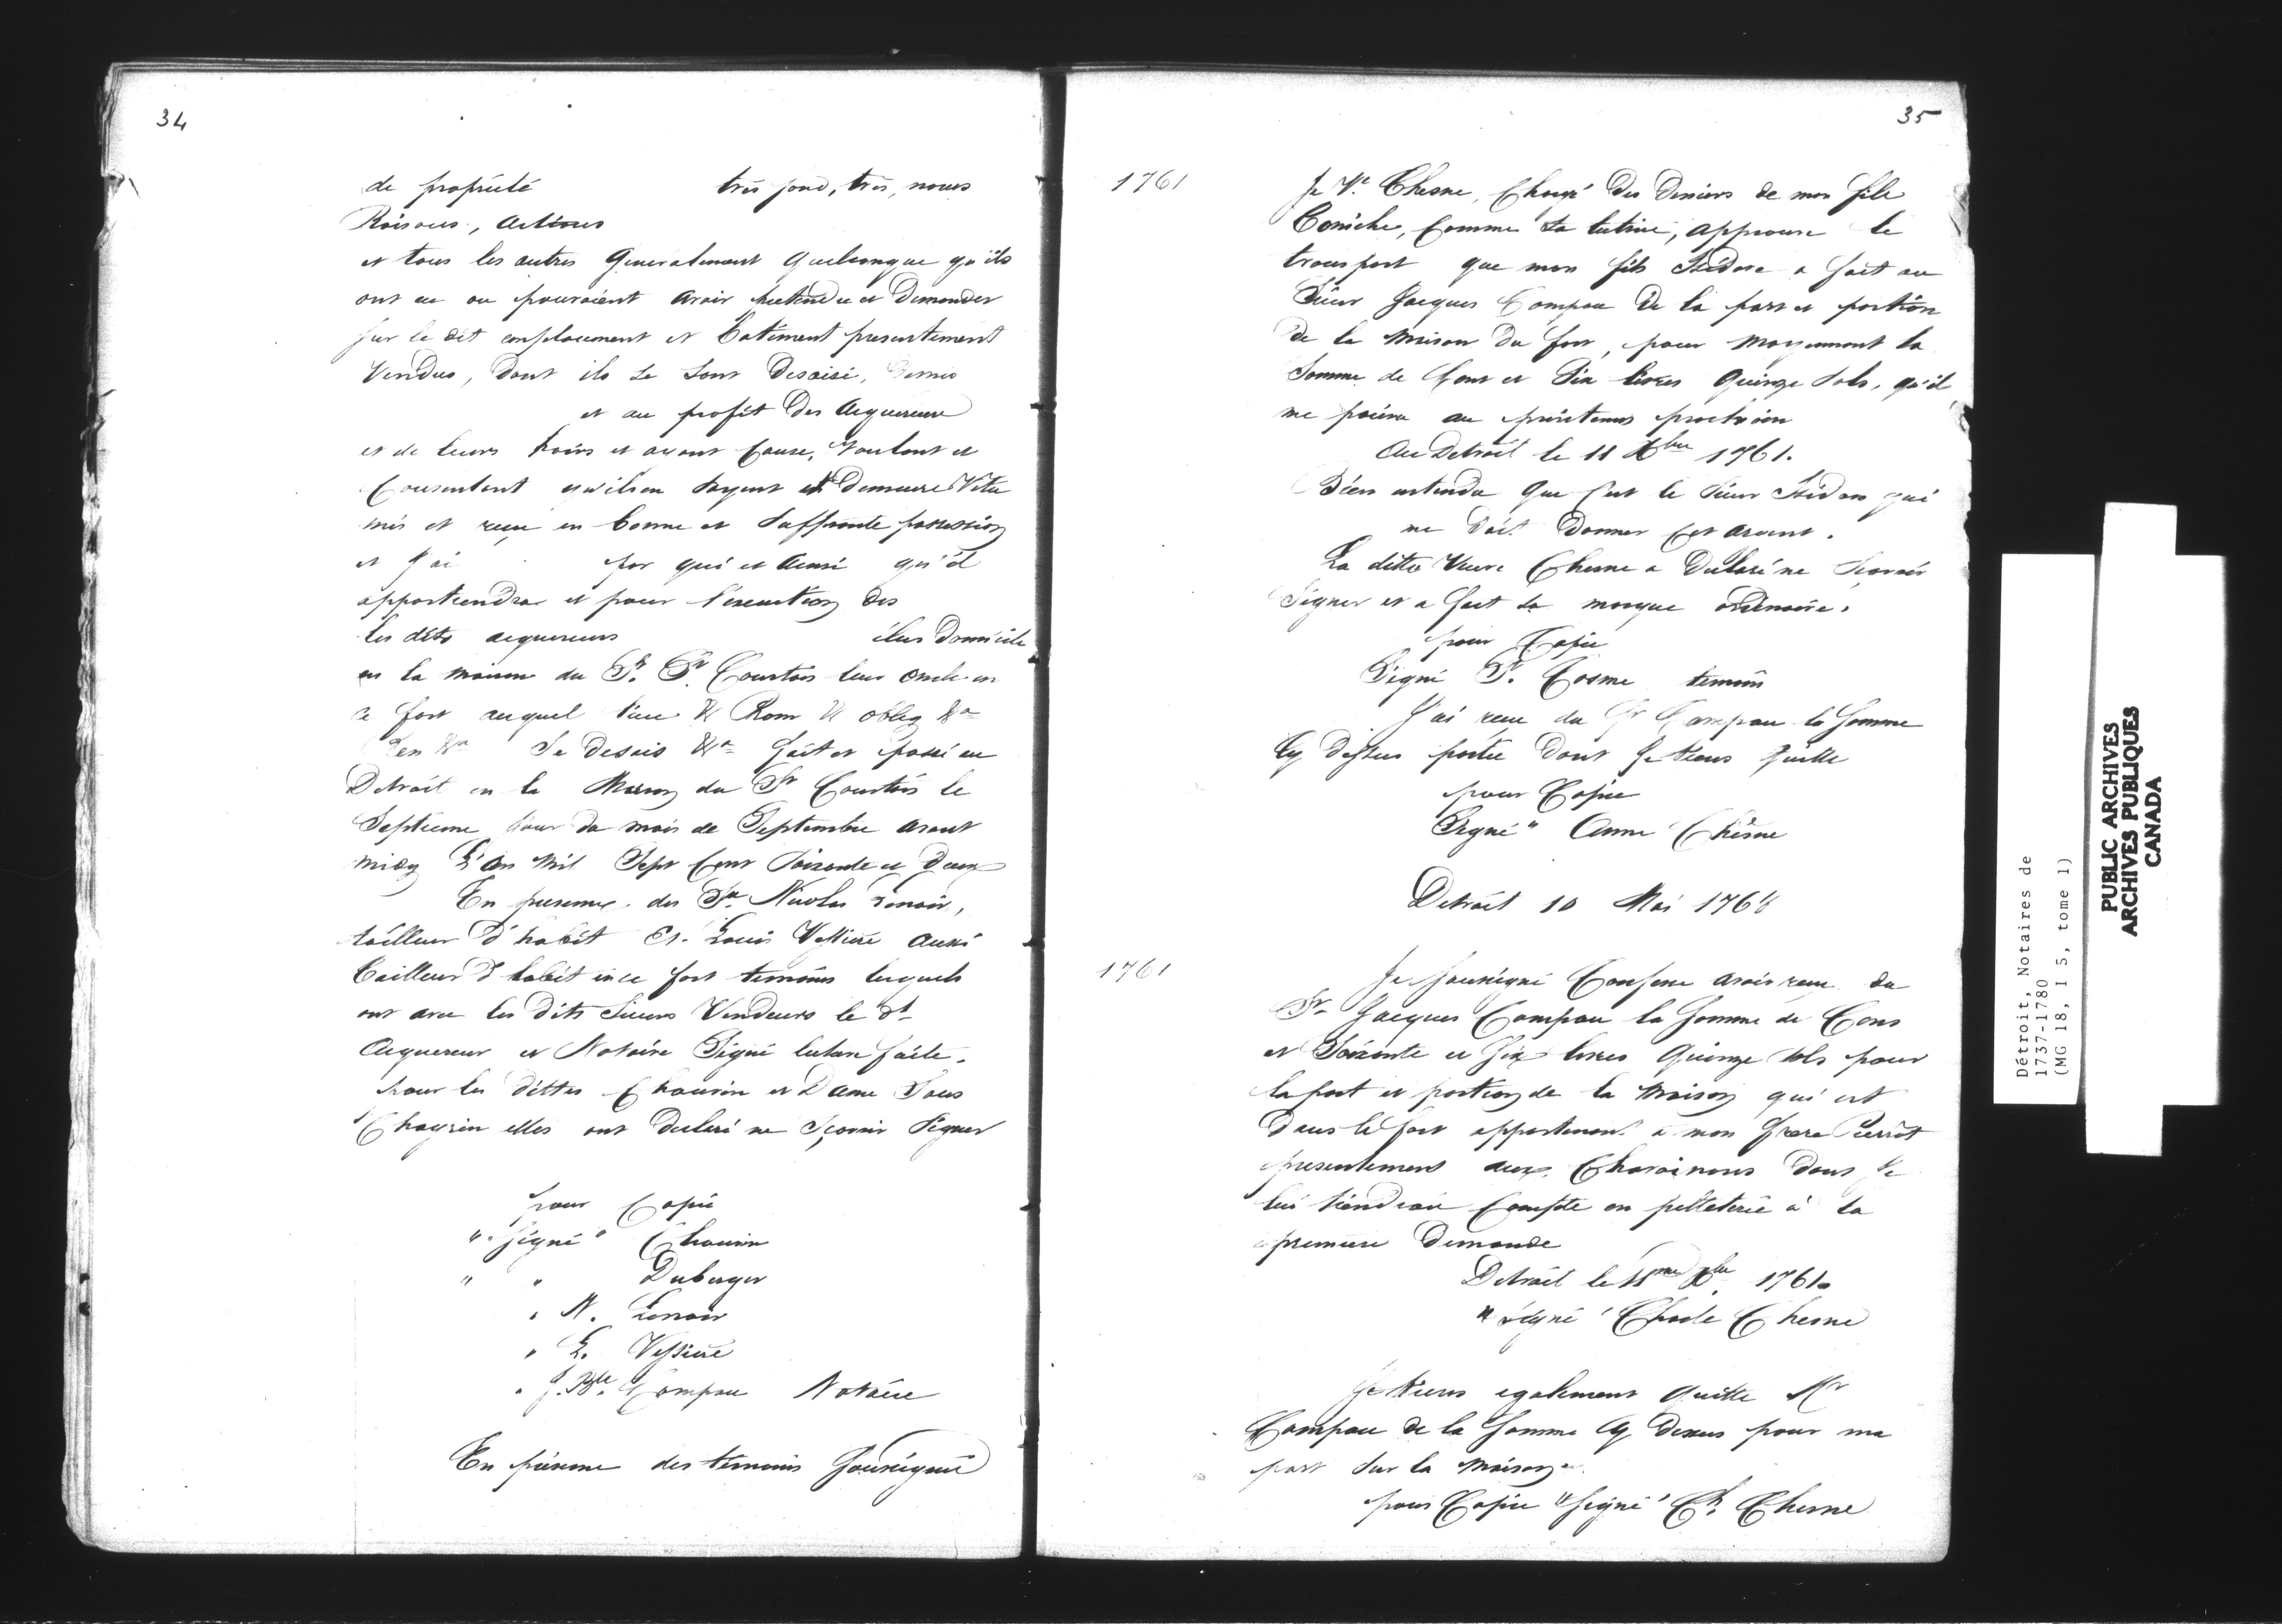 34
de propriété tres fond, tres, noms
Raisons, Actions
et tous les autres Generalement quelconque qu'ils
ont eu ou pouraient avoir pretendre et Demander
sur le dit emplacement et batiment presentement
Vendus, Dont ils se sont Desaisi,
et au profit Des Acquereure
et de leurs hoirs et ayant Cause, Voulant et
Consentent
mis et reçu en bonne et Suffisante possession
et par qui et Ainsi qu'il
appartiendra et pour l'execution des
les dits acquereurs élus Domicile
en la maison du Sr. Courtois leur oncle en
ce fort auquel lieu &c Rom &c oblig &a
Ren &a Se Desais &a fait et passé au
Detroit en la Maison du Sr Courtois le
Septieme Jour du mois de Septembre avant
midy L'An Mil Sept Cent Soixante et Deux
En presence des Srs. Nicolas Lenoir,
tailleur D'habit Et. Louis Vessiere aussi
tailleur D'habit en ce fort temoins lesquels
ont avec les dits Sieurs Vendeurs le dt
Acquereur et Notaire Signé lecture faite.
pour les dittes Chauvin et Dame
Chauvin elles ont Declaré ne Sçavoir Signer
pour Copie
" Signé " Chauvin
" " Duberger
" N. Lenoir
" L. Vessiere
" J. Bte. Campau Notaire
En présence des témoins Soussignés
35
1761
Je Ve. Chesne, Chargé Des Deniers de mon fils
Coniche, Comme Sa tutrice, approuve le
transport que mon fils Isidore a fait au
Sieur Jacques Campau De la part et portion
De la Maison Du fort, pour Moyennant la
Somme de Cent et Dix livres Quinze Sols, qu'il
me paiera au printems prochain
Au Detroit le 11 Xbre 1761.
Bien entendu Que c'est le Sieur Isidore qui
me Doit Donner Cet Argent.
La ditte Veuve Chesne a Declaré ne Scavoir
Signer et a fait Sa marque ordinaire.
pour Copie
Signé P. Cosme temoin
J'ai reçu du Sr Campau la Somme
Cy dessus portée Dont Je tiens quitte
pour Copie
Signé " Anne Chêsne
Detroit 10 Mai 176
1761
Je Soussigné Confesse avoir reçu du
Sr Jacques Campau la Somme de Cens
et Soixante et Six livres Quinze Sols pour
la part et portion de la Maison qui est
Dans le fort appartenant à mon frere Pierrot
presentement aux Dont Je
lui tiendrai Compte en pelleterie à Sa
premiere Demande
Detroit le 11me Xbre. 1761.
" Signé ' Charle Chesne
Je tiens egalement Quitte Mr
Campau de la Somme Cy Dessus pour ma
part Sur la Maison.
pour Copie " Signé ' Ch. Chesne
Détroit, Notaires de
1737-1780
(MG 18, I 5, tome 1)
PUBLIC ARCHIVES
ARCHIVES PUBLIQUES
CANADA